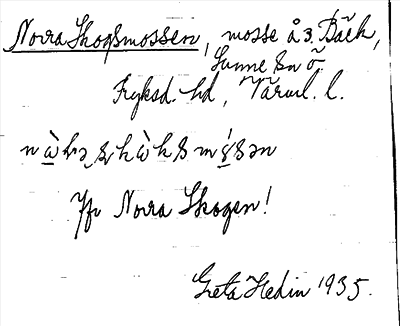 Norra Skogsmossen, mosse å 3. Bäck,
Sunne sn ö
Fryksd. hd, Värml. l.
Jfr Norra Skogen!
Greta Hedin 1935.